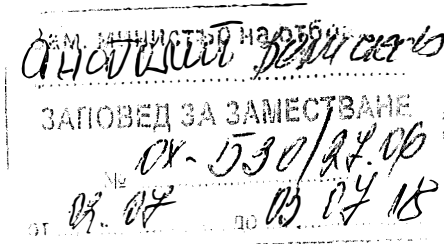 Зам. министър на отбо
Анатолий Величков
ЗАПОВЕД ЗА ЗАМЕСТВАНЕ
№ ОХ-530/27.06
от 02.07 до 03.07.18